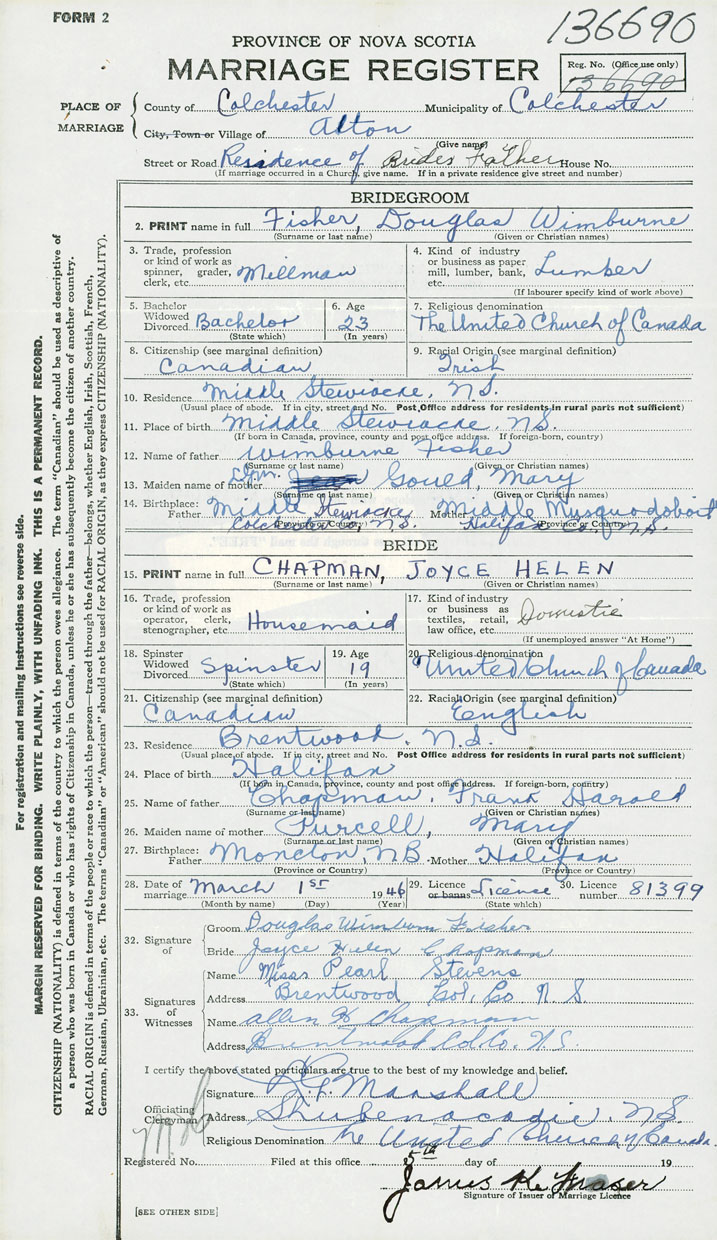 FORM 2
136690
PROVINCE OF NOVA SCOTIA
MARRIAGE REGISTER
Reg. No. (Office use only)
136690
PLACE OF MARRIAGE
County of Colchester Municipality of Colchester
City, Town or Village of Alton
(Give name)
Street or Road Residence of Brides Father House No.
(If marriage occurred in a Church, give name. If in a private residence give street and number)
BRIDEGROOM
2. PRINT name in full Fisher, Douglas Wimburne
(Surname or last name) (Given or Christian names)
3. Trade, profession or kind of work as spinner, grader, clerk, etc. Millman
4. Kind of industry or business as paper mill, lumber, bank, etc. Lumber
(If labourer specify kind of work above)
5. Bachelor Widowed Divorced Bachelor
(State which)
6. Age 23
(In years)
7. Religious denomination
The United Church of Canada
8. Citizenship (see marginal definition)
Canadian
9. Racial Origin (see marginal definition)
Irish
10. Residence Middle Stewiacke, N.S.
(Usual place of abode. If in city, street and No. Post Office address for residents in rural parts not sufficient)
11. Place of birth Middle Stewiacke, N.S.
(If born in Canada, province, county and post office address. If foreign-born, country)
12. Name of father Wimburne Fisher
(Surname or last name) (Given or Christian names)
13. Maiden name of mother Gould, Mary
(Surname or last name) (Given or Christian names)
14. Birthplace: Father Middle Stewiacke Mother Middle Musquodoboit
Colchester, N.S. Halifax Co. N.S.
(Province or Country) (Province or Country)
BRIDE
15. PRINT name in full CHAPMAN, JOYCE HELEN
(Surname or last name) (Given or Christian names)
16. Trade, profession or kind of work as operator, clerk, stenographer, etc. Housemaid
17. Kind of industry or business as textiles, retail, law office, etc. Domestic
(If unemployed answer "At Home")
18. Spinster Widowed Divorced Spinster
(State which)
19. Age 19
(In years)
20. Religious denomination
United Church of Canada
21. Citizenship (see marginal definition)
Canadian
22. Racial Origin (see marginal definition)
English
23. Residence Brentwood, N.S.
(Usual place of abode. If in city, street and No. Post Office address for residents in rural parts not sufficient)
24. Place of birth Halifax
(If born in Canada, province, county and post office address. If foreign-born, country)
25. Name of father Chapman, Frank Harold
(Surname or last name) (Given or Christian names)
26. Maiden name of mother Purcell, Mary
(Surname or last name) (Given or Christian names)
27. Birthplace: Father Moncton, NB Mother Halifax
(Province or Country) (Province or Country)
28. Date of marriage March 1st 1946
(Month by name) (Day) (Year)
29. Licence or banns License
(State which)
30. Licence number 81399
32. Signature of
Groom Douglas Wimburn Fisher
Bride Joyce Helen Chapman
33. Signatures of Witnesses
Name Miss Pearl Stevens
Address Brentwood Col. Co N.S.
Name Allen H Chapman
Address Brentwood Col. Co. N.S.
I certify the above stated particulars are true to the best of my knowledge and belief.
Officiating Clergyman
Signature Marshall
Address Shubenacadie, N.S.
Religious Denomination The United Church of Canada.
Registered No. Filed at this office 5th day of 19
James K. Fraser
Signature of Issuer of Marriage Licence
[SEE OTHER SIDE]
For registration and mailing instructions see reverse side.
MARGIN RESERVED FOR BINDING. WRITE PLAINLY, WITH UNFADING INK. THIS IS A PERMANENT RECORD.
CITIZENSHIP (NATIONALITY) is defined in terms of the country to which the person owes allegiance. The term "Canadian" should be used as descriptive of
a person who was born in Canada or who has rights of Citizenship in Canada, unless he or she has subsequently become the citizen of another country.
RACIAL ORIGIN is defined in terms of the people or race to which the person—traced through the father—belongs, whether English, Irish, Scottish, French,
German, Russian, Ukrainian, etc. The terms "Canadian" or "American" should not be used for RACIAL ORIGIN, as they express CITIZENSHIP (NATIONALITY).